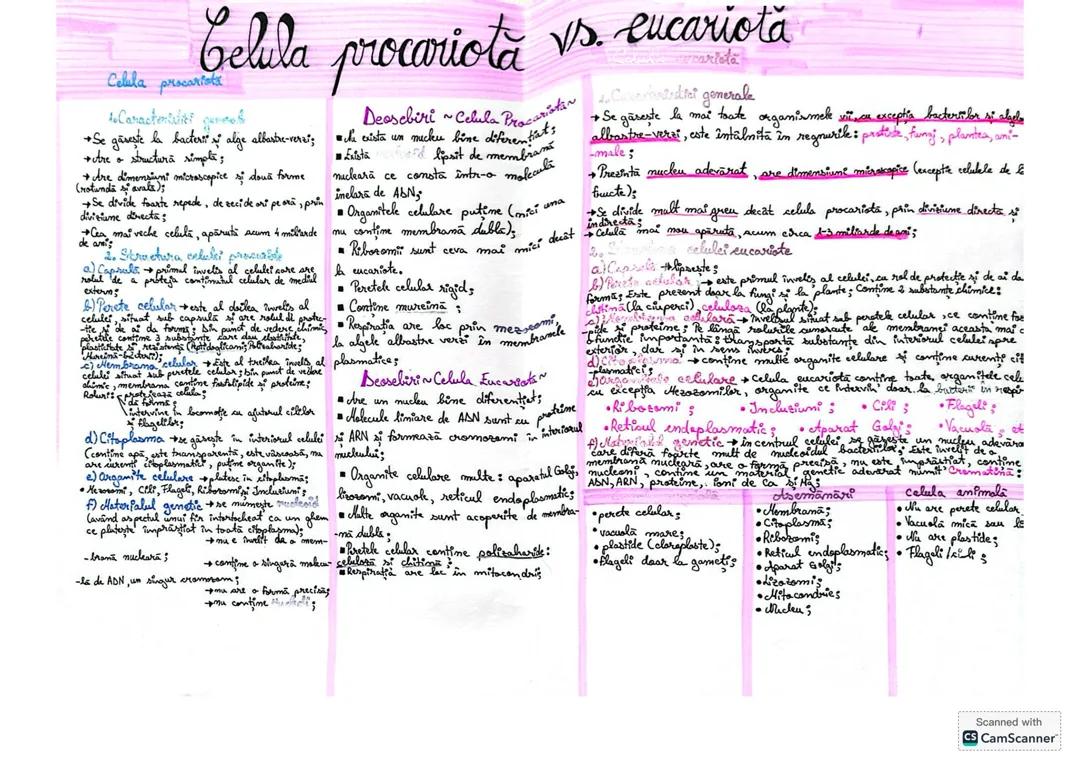 Celula procariotă vs. eucariotă
Celula procariotă
1. Caracteristici generale
→ Se găsește la bacterii și alge albastre-verzi;
→ Are o structură simplă;
→ Are dimensiuni microscopice și două forme
(rotundă și ovală);
→ Se divide foarte repede, de zeci de ori pe oră, prin
diviziune directă;
→ Cea mai veche celulă, apărută acum 4 miliarde
de ani;
2. Structura celulei procariote
a) Capsulă → primul înveliș al celulei care are
rolul de a proteja conținutul celulei de mediul
extern;
b) Perete celular → este al doilea înveliș al
celulei situat sub capsulă și are rolul de prote-
ție și de a da formă; Din punct de vedere chimic,
peretele conține 3 substanțe care dau elasticitate,
plasticitate și rezistență
Mureină-bacterii);
c) Membrana celular → este al treilea înveliș al
celulei situat sub peretele celular; Din punct de vedere
chimic, membrana conține fosfolipide și proteine;
Roluri: protejează celula;
dă formă;
intervine în locomoție cu ajutorul cililor
și flagelilor;
d) Citoplasma → se găsește în interiorul celulei
(conține apă, este transparentă, este vâscoasă, nu
are curenți citoplasmatici, puține organite);
e) Organite celulare → plutesc în citoplasmă;
• Mezozomi, Cili, Flageli, Ribozomi și Incluziuni;
f) Materialul genetic → se numește nucleoid
(având aspectul unui fir întortocheat ca un ghem
ce plutește împrăștiat în toată citoplasma);
→ nu e învelit de o mem-
-brană nucleară;
→ conține o singură molecu-
-lă de ADN, un singur cromozom;
→ nu are o formă precisă;
→ nu conține nucleoli;
Deosebiri ~ Celula Procariotă ~
▪ Nu există un nucleu bine diferențiat;
▪ Există nucleoid lipsit de membrană
nucleară ce constă într-o moleculă
inelară de ADN;
▪ Organitele celulare puține (nici una
nu conține membrană dublă);
▪ Ribozomii sunt ceva mai mici decât
la eucariote.
▪ Peretele celular rigid;
▪ Conține mureină;
▪ Respirația are loc prin mezozomi,
la algele albastre verzi în membranele
plasmatice;
Deosebiri ~ Celula Eucariotă ~
▪ Are un nucleu bine diferențiat;
▪ Molecule liniare de ADN sunt cu proteine
și ARN și formează cromozomi în interiorul
nucleului;
▪ Organite celulare multe: aparatul Golgi,
lizozomi, vacuole, reticul endoplasmatic;
▪ Multe organite sunt acoperite de membra-
-nă dublă;
▪ Peretele celular conține polizaharide:
celuloză și chitină;
▪ Respirația are loc în mitocondrii;
Celula eucariotă
1. Caracteristici generale
→ Se găsește la mai toate organismele vii, cu excepția bacteriilor și algelor
albastre-verzi, este întâlnită în regnurile: protiste, fungi, plantea, ani-
-male;
→ Prezintă nucleu adevărat, are dimensiuni microscopice (excepție celulele de la
fructe);
→ Se divide mult mai greu decât celula procariotă, prin diviziune directă și
indirectă;
→ Celulă mai nou apărută, acum circa 1-3 miliarde de ani;
2. Structura celulei eucariote
a) Capsula → lipsește;
b) Perete celular → este primul înveliș al celulei, cu rol de protecție și de a da
formă; Este prezent doar la fungi și la plante; Conține 2 substanțe chimice:
chitină (la ciuperci) celuloza (la plante);
c) Membrana celulară → învelișul situat sub peretele celular, ce conține
și proteine; Pe lângă rolurile cunoscute ale membranei aceasta mai
funcție importantă: transportă substanțe din interiorul celulei spre
exterior, dar și în sens invers;
d) Citoplasma → conține multe organite celulare și conține curenți
-plasmatici;
e) Organite celulare → Celula eucariotă conține toate organitele
cu excepția Mezozomilor, organite ce intervin doar la bacterii în
• Ribozomi; • Incluziuni; • Cili; • Flageli;
• Reticul endoplasmatic; • Aparat Golgi; • Vacuolă,
f) Materialul genetic → în centrul celulei se găsește un nucleu adevărat
care diferă foarte mult de nucleoidul bacteriilor; Este învelit de o
membrană nucleară, are o formă precisă, nu este împrăștiat, conține
nucleoni, conține un material genetic adevărat numit Cromatină:
ADN, ARN, proteine, ioni de Ca și Mg;
• perete celular;
• vacuolă mare;
• plastide (cloroplaste);
• Flageli doar la gameți;
Asemănări
• Membrană;
• Citoplasmă;
• Ribozomi;
• Reticul endoplasmatic;
• Aparat Golgi;
• Lizozomi;
• Mitocondrie;
• Nucleu;
Celula animală
• Nu are perete celular
• Vacuolă mică sau
• Nu are plastide;
• Flageli/cili;
Scanned with
CS CamScanner